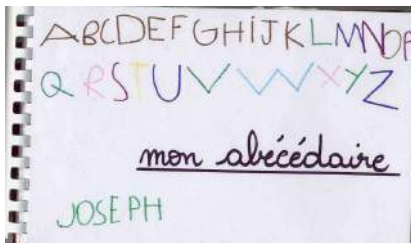 ABCDEFGHIJKLMNOP
QRSTUVWXYZ
mon abécédaire
JOSEPH